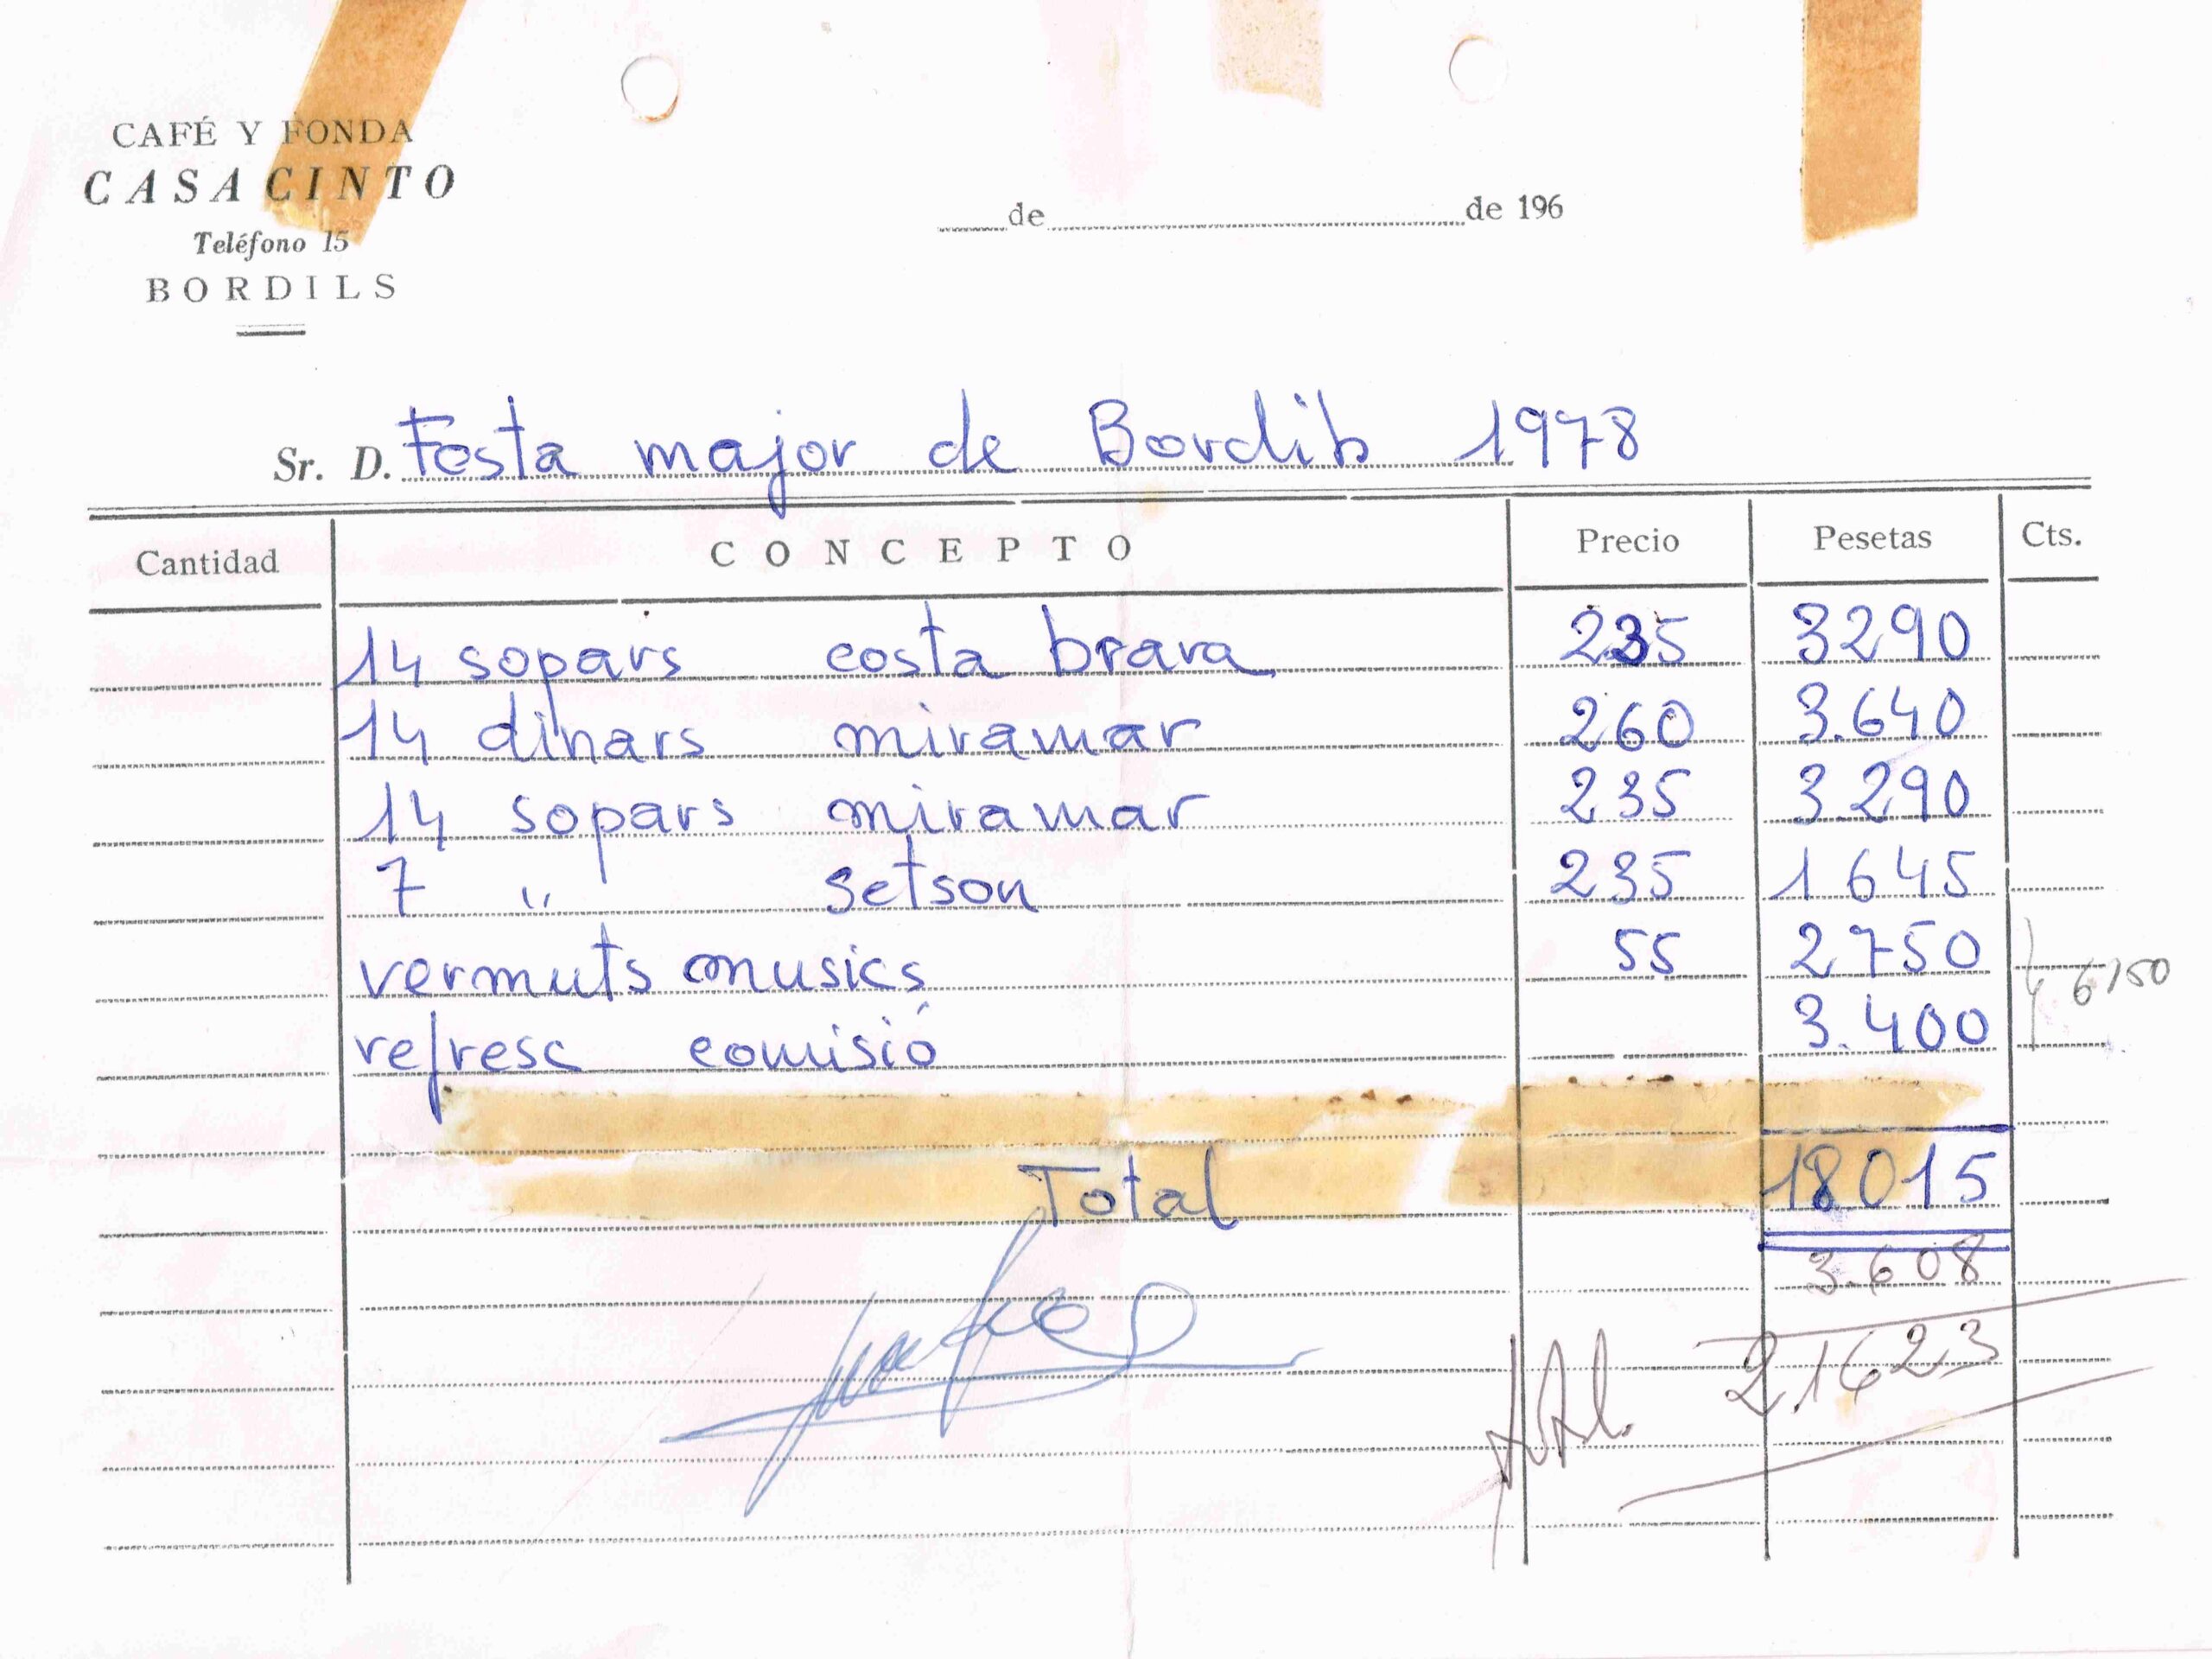 CAFÉ Y FONDA
CASA CINTO
Teléfono 15
BORDILS
de de 196
Sr. D. Festa major de Bordils 1978
Cantidad CONCEPTO Precio Pesetas Cts.
14 sopars costa brava 235 3290
14 dinars miramar 260 3.640
14 sopars miramar 235 3.290
7 " setson 235 1645
vermuts musics 55 2750
6150
refresc comisió 3.400
Total 18015
3.608
total 21623